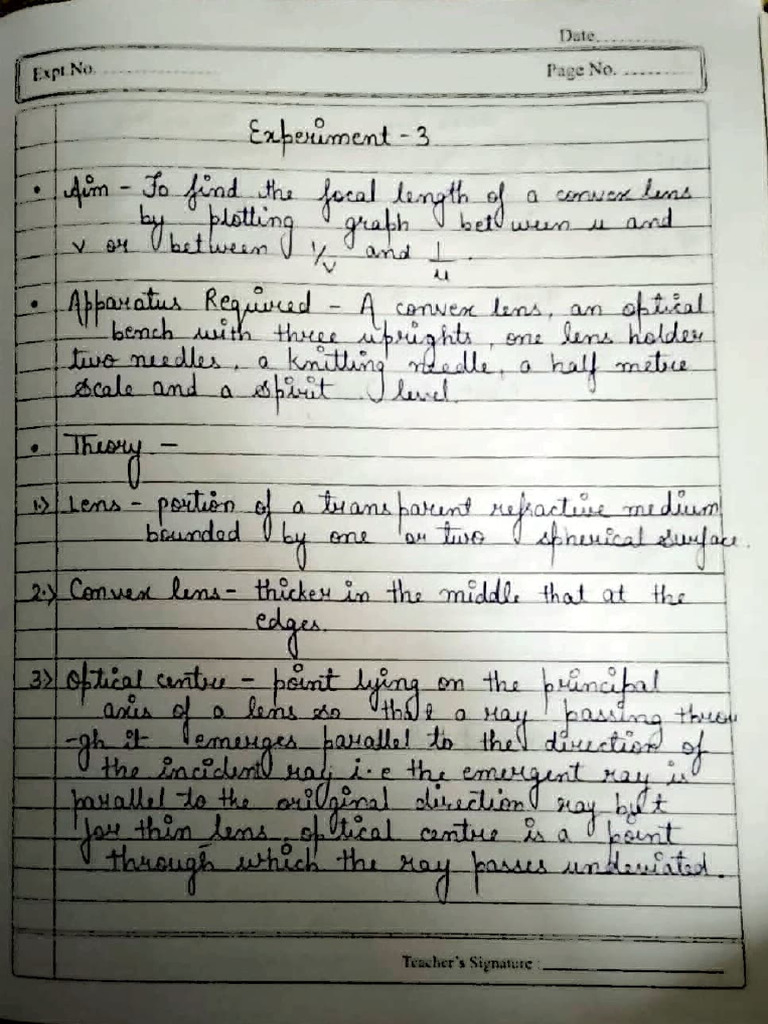 Date..............
Expt.No. ....................
Page No. ............
Experiment - 3
• Aim - To find the focal length of a convex lens
by plotting graph between u and
v or between 1/v and 1/u.
• Apparatus Required - A convex lens, an optical
bench with three uprights, one lens holder
two needles, a knitting needle, a half metre
scale and a spirit level.
• Theory -
1.) Lens - portion of a transparent refractive medium
bounded by one or two spherical surface.
2.) Convex lens - thicker in the middle that at the
edges.
3.) Optical centre - point lying on the principal
axis of a lens so that a ray passing throu
-gh it emerges parallel to the direction of
the incident ray i.e the emergent ray is
parallel to the original direction ray but
for thin lens, optical centre is a point
through which the ray passes undeviated.
Teacher's Signature : ____________________